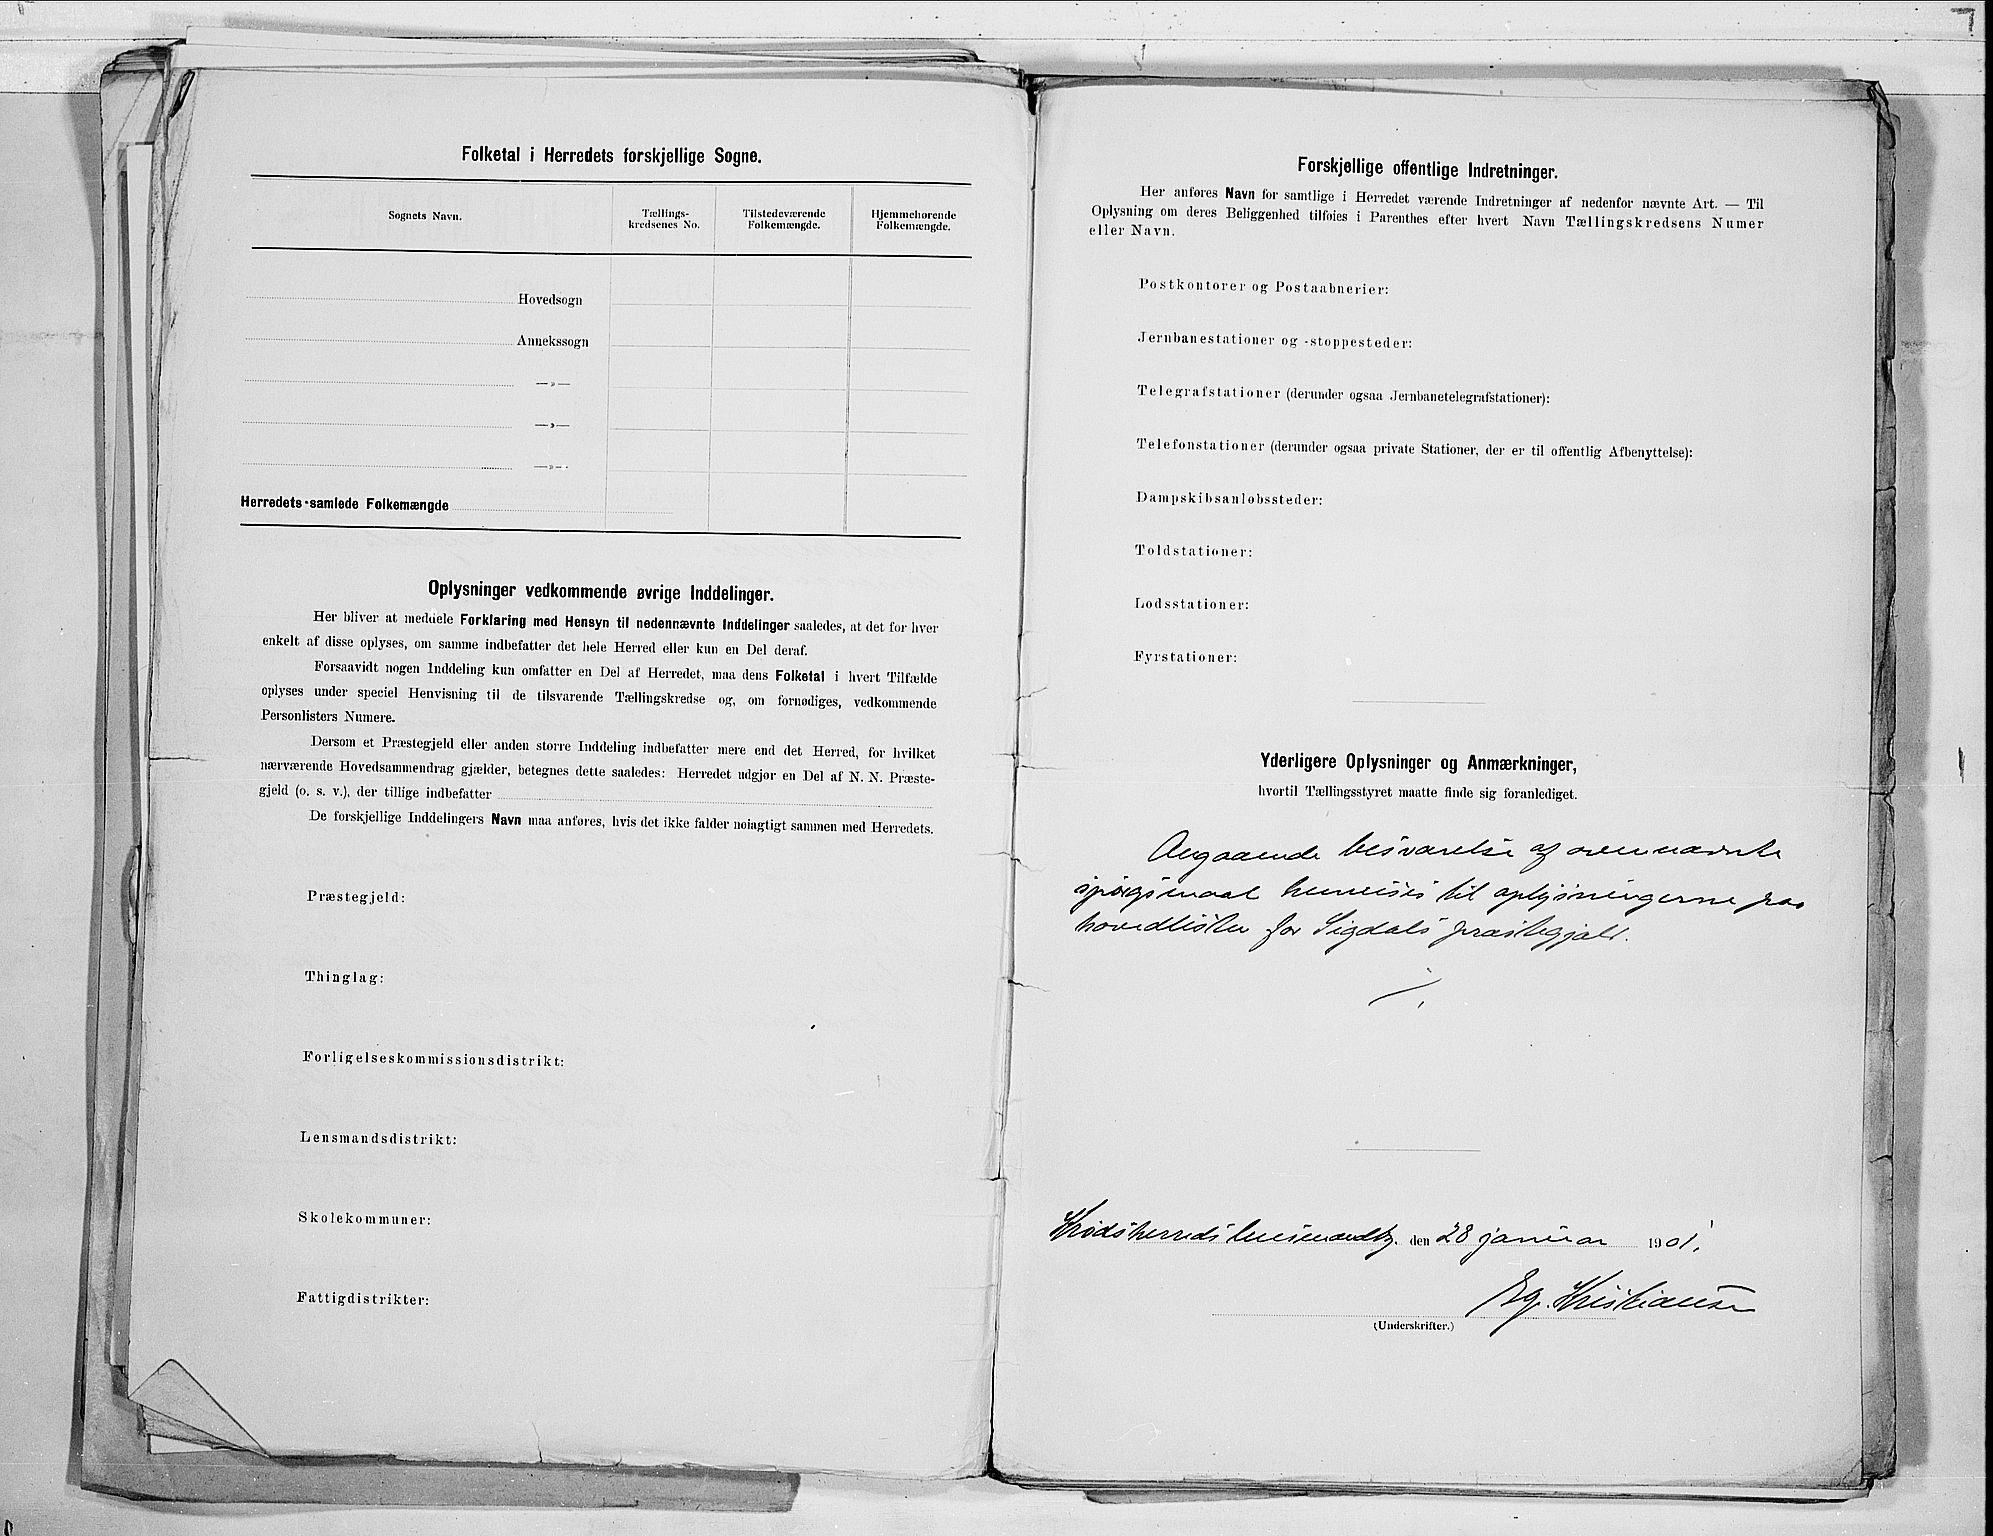 Folketal i Herredets forskjellige Sogne.
Sognets Navn.
Tællings-
kredsenes No.
Tilstedeværende
Folkemængde.
Hjemmehørende
Folkemængde.
Hovedsogn
Annekssogn
—»—
—»—
—»—
Herredets samlede Folkemængde
Oplysninger vedkommende øvrige Inddelinger.
Her bliver at meddele Forklaring med Hensyn til nedennævnte Inddelinger saaledes, at det for hver
enkelt af disse oplyses, om samme indbefatter det hele Herred eller kun en Del deraf.
Forsaavidt nogen Inddeling kun omfatter en Del af Herredet, maa dens Folketal i hvert Tilfælde
oplyses under speciel Henvisning til de tilsvarende Tællingskredse og, om fornødiges, vedkommende
Personlisters Numere.
Dersom et Præstegjeld eller anden større Inddeling indbefatter mere end det Herred, for hvilket
nærværende Hovedsammendrag gjælder, betegnes dette saaledes: Herredet udgjør en Del af N. N. Præste-
gjeld (o. s. v.), der tillige indbefatter
De forskjellige Inddelingers Navn maa anføres, hvis det ikke falder nøiagtigt sammen med Herredets.
Præstegjeld:
Thinglag:
Forligelseskommissionsdistrikt:
Lensmandsdistrikt:
Skolekommuner:
Fattigdistrikter:
Forskjellige offentlige Indretninger.
Her anføres Navn for samtlige i Herredet værende Indretninger af nedenfor nævnte Art. — Til
Oplysning om deres Beliggenhed tilføies i Parenthes efter hvert Navn Tællingskredsens Numer
eller Navn.
Postkontorer og Postaabnerier:
Jernbanestationer og -stoppesteder:
Telegrafstationer (derunder ogsaa Jernbanetelegrafstationer):
Telefonstationer (derunder ogsaa private Stationer, der er til offentlig Afbenyttelse):
Dampskibsanløbssteder:
Toldstationer:
Lodsstationer:
Fyrstationer:
Yderligere Oplysninger og Anmærkninger,
hvortil Tællingsstyret maatte finde sig foranlediget.
Angaaende besvarelse af ovennævnte
spørgsmaal henvises til oplysningerne paa
hovedlisten for Sigdals præstegjæld.
Krødsherreds lensmandbg. den 28 januar 1901.
Eg. Kristiansen
(Underskrifter.)